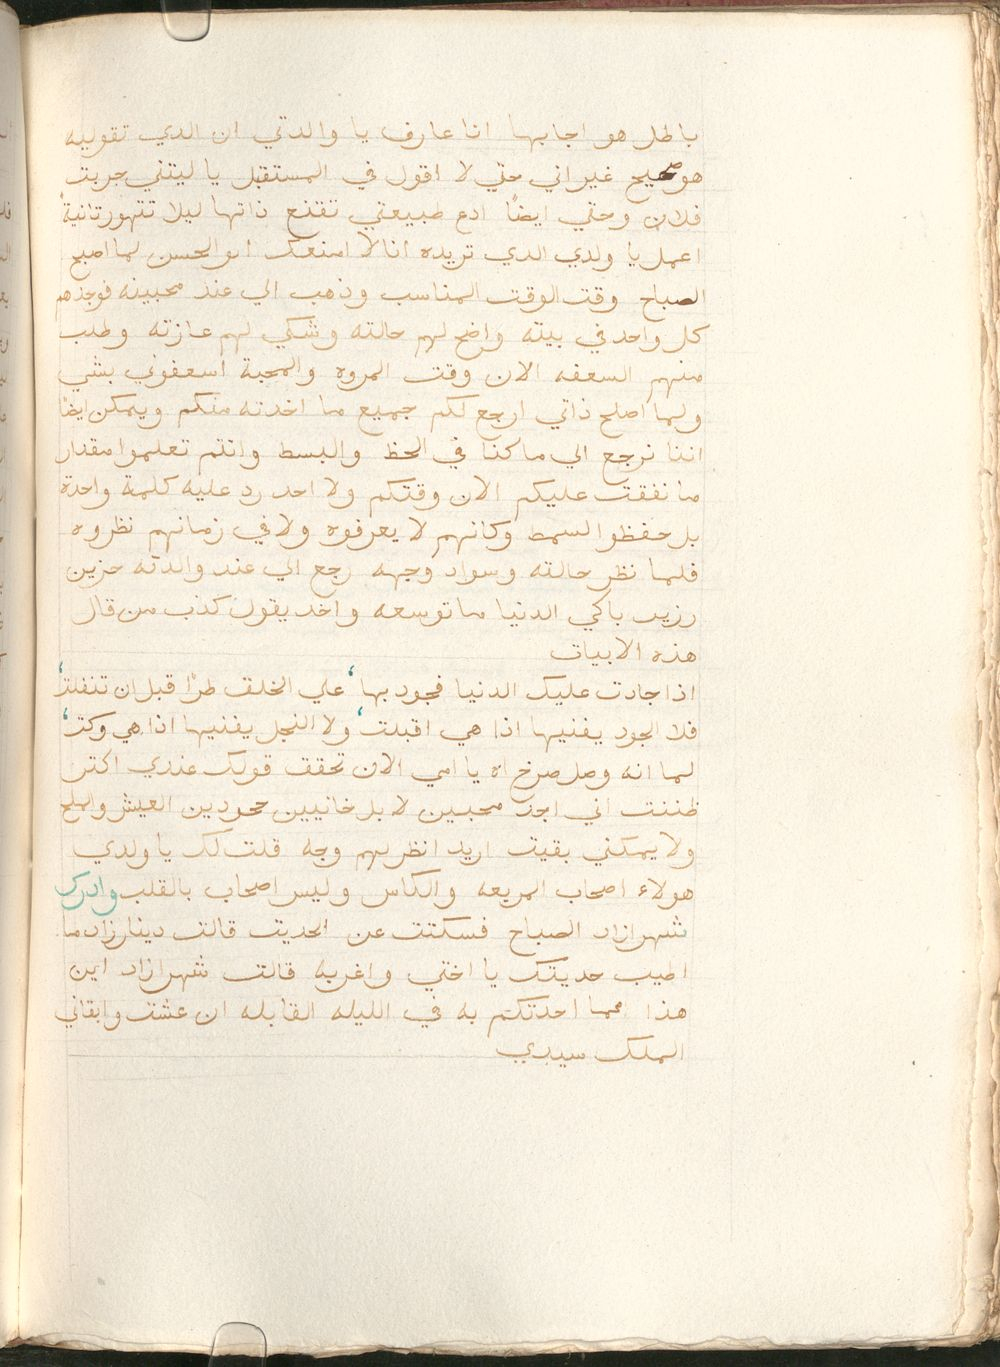 باطل هو اجابها انا عارف يا والدتي ان الدي تقوليه
هو صحيح غير اني حتي لا اقول في المستقبل يا ليتني جربت
فلان وحتي ايضًا ادع طبيعتي تقنع ذاتها ليلا تتهور تانيةً
اعمل يا ولدي الدي تريده انا لا امنعك ابو الحسن لما اصبح
الصباح وقت الوقت المناسب وذهب الي عند محبينه فوجدهم
كل واحد في بيته واضح لهم حالته وشكي لهم عازته وطلب
منهم السعفه الان وقت المروه والمحبة اسعفوني بشي
ولما اصلح ذاتي ارجع لكم جميع ما اخدته منكم ويمكن ايضًا
اننا نرجع الي ما كنا في الحظ والبسط وانتم تعلموا مقدار
ما نفقت عليكم الان وقتكم ولا احد رد عليه كلمة واحدة
بل حفظو السمط وكانهم لا يعرفوه ولا في زمانهم نظروه
فلما نظر حالته وسواد وجهه رجع الي عند والدته حزين
باكي الدنيا ما توسعه واخد يقول كذب من قال
هذه الابيات
اذا جادت عليك الدنيا فجود بها، علي الخلق طرًا قبل ان تنفلت،
فلا الجود يفنيها اذا هي اقبلت، ولا النجل يفنيها اذا هي وكت،
لما انه وصل صرخ اه يا امي الان تحقق قولك عندي اكتر
ظننت اني اجد محبين لا بل خانيين جحودين العيش والملح
ولا يمكني بقيت اريد انظر لهم وجه قلت لك يا ولدي
هولاء اصحاب المريعه والكاس وليس اصحاب بالقلب وادرك
شهرازاد الصباح فسكتت عن الحديت قالت دينارزاد ما
اطيب حديتك يا اختي واغربه قالت شهرازاد اين
هذا مما احدتكم به في الليله القابله ان عشت وابقاني
الملك سيدي